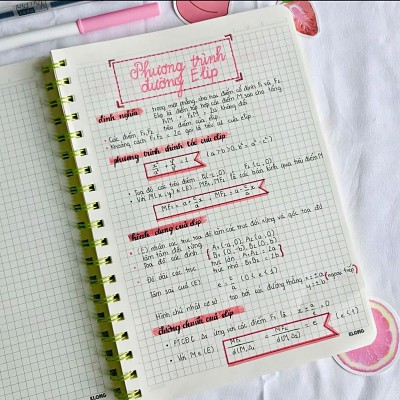 Phương trình
đường Elip
định nghĩa
trong mặt phẳng, cho hai điểm cố định F₁ và F₂
Elip là tập hợp các điểm M sao cho tổng
F₁M + F₂M = 2a không đổi
• Các điểm F₁, F₂ tiêu điểm của elip.
• Khoảng cách F₁F₂ = 2c gọi là tiêu cự của elip
phương trình chính tắc của elip
x²/a² + y²/b² = 1 (a > b > 0, b² = a² - c²)
• Toạ độ các tiêu điểm F₁(-c, 0) F₂(c, 0)
• Với M(x, y) ∈ (E), MF₁, MF₂ là các bán kính qua tiêu điểm M
MF₁ = a + c/a x, MF₂ = a - c/a x
hình dạng của elip
• (E) nhận các trục toạ độ làm các trục đối xứng và gốc toạ độ
làm tâm đối xứng
Toạ độ các đỉnh A₁(-a, 0), A₂(a, 0)
B₁(0, -b), B₂(0, b)
• Độ dài các trục trục lớn A₁A₂ = 2a
trục nhỏ B₁B₂ = 2b
Tâm sai của (E) e = c/a (0 < e < 1)
Hình chữ nhật cơ sở tạo bởi các đường thẳng x = ±a
y = ±b (ngoại tiếp)
đường chuẩn của elip
ứng với các điểm F₁ là x ± a/e = 0
• Với M ∈ (E) MF₁/d(M, Δ₁) = MF₂/ = e (e < 1)
KLONG
KLONG